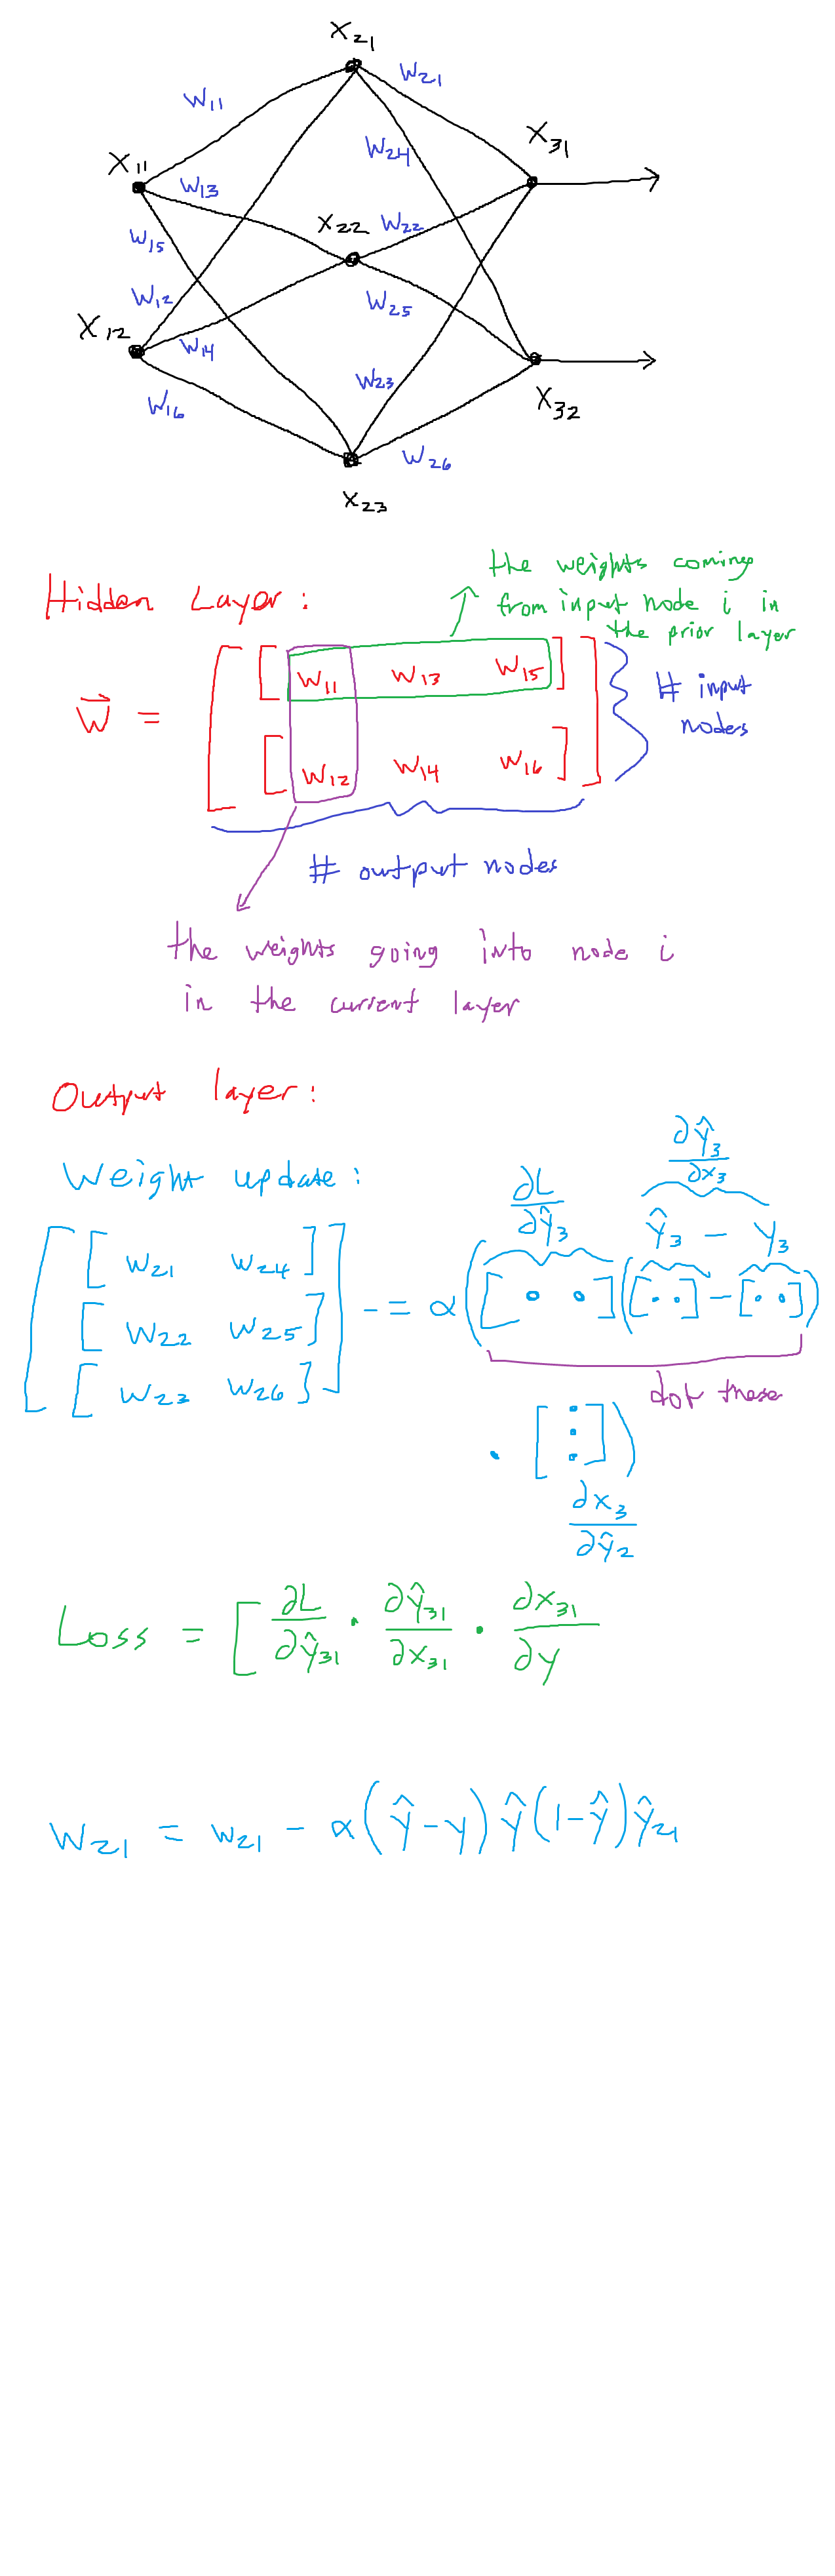 x₂₁
w₂₁
w₁₁
x₃₁
w₂₄
x₁₁
w₁₃
x₂₂ w₂₂
w₁₅
w₁₂
w₂₅
x₁₂
w₁₄
w₂₃
w₁₆
x₃₂
w₂₆
x₂₃
the weights coming
from input node i in
the prior layer
Hidden Layer:
w⃗ = [ [ w₁₁ w₁₃ w₁₅ ]
[ w₁₂ w₁₄ w₁₆ ] ]
# input
nodes
# output nodes
the weights going into node i
in the current layer
Output layer:
Weight update:
∂L/∂ŷ₃
∂ŷ₃/∂x₃
ŷ₃ - y₃
[ [ w₂₁ w₂₄ ]
[ w₂₂ w₂₅ ] -= α([ · · ]([ · · ] - [ · · ])
[ w₂₃ w₂₆ ] ]
dot these
· [ ⋮ ])
∂x₃/∂ŷ₂
Loss = [ ∂L/∂ŷ₃₁ · ∂ŷ₃₁/∂x₃₁ · ∂x₃₁/∂y
w₂₁ = w₂₁ - α(ŷ-y)ŷ(1-ŷ)ŷ₂₁